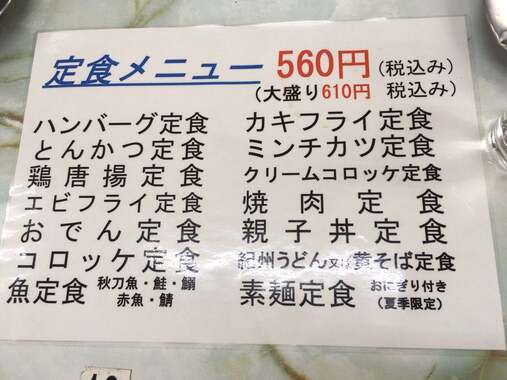 定食メニュー 560円(税込み)
(大盛り610円 税込み)
ハンバーグ定食
とんかつ定食
鶏唐揚定食
エビフライ定食
おでん定食
コロッケ定食
魚定食 秋刀魚・鮭・鰯
赤魚・鯖
カキフライ定食
ミンチカツ定食
クリームコロッケ定食
焼肉定食
親子丼定食
紀州うどん又は黄そば定食
素麺定食 おにぎり付き
(夏季限定)